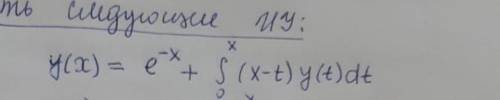 ть следующие ИУ:
y(x) = e^{-x} + ∫_0^x (x-t) y(t) dt